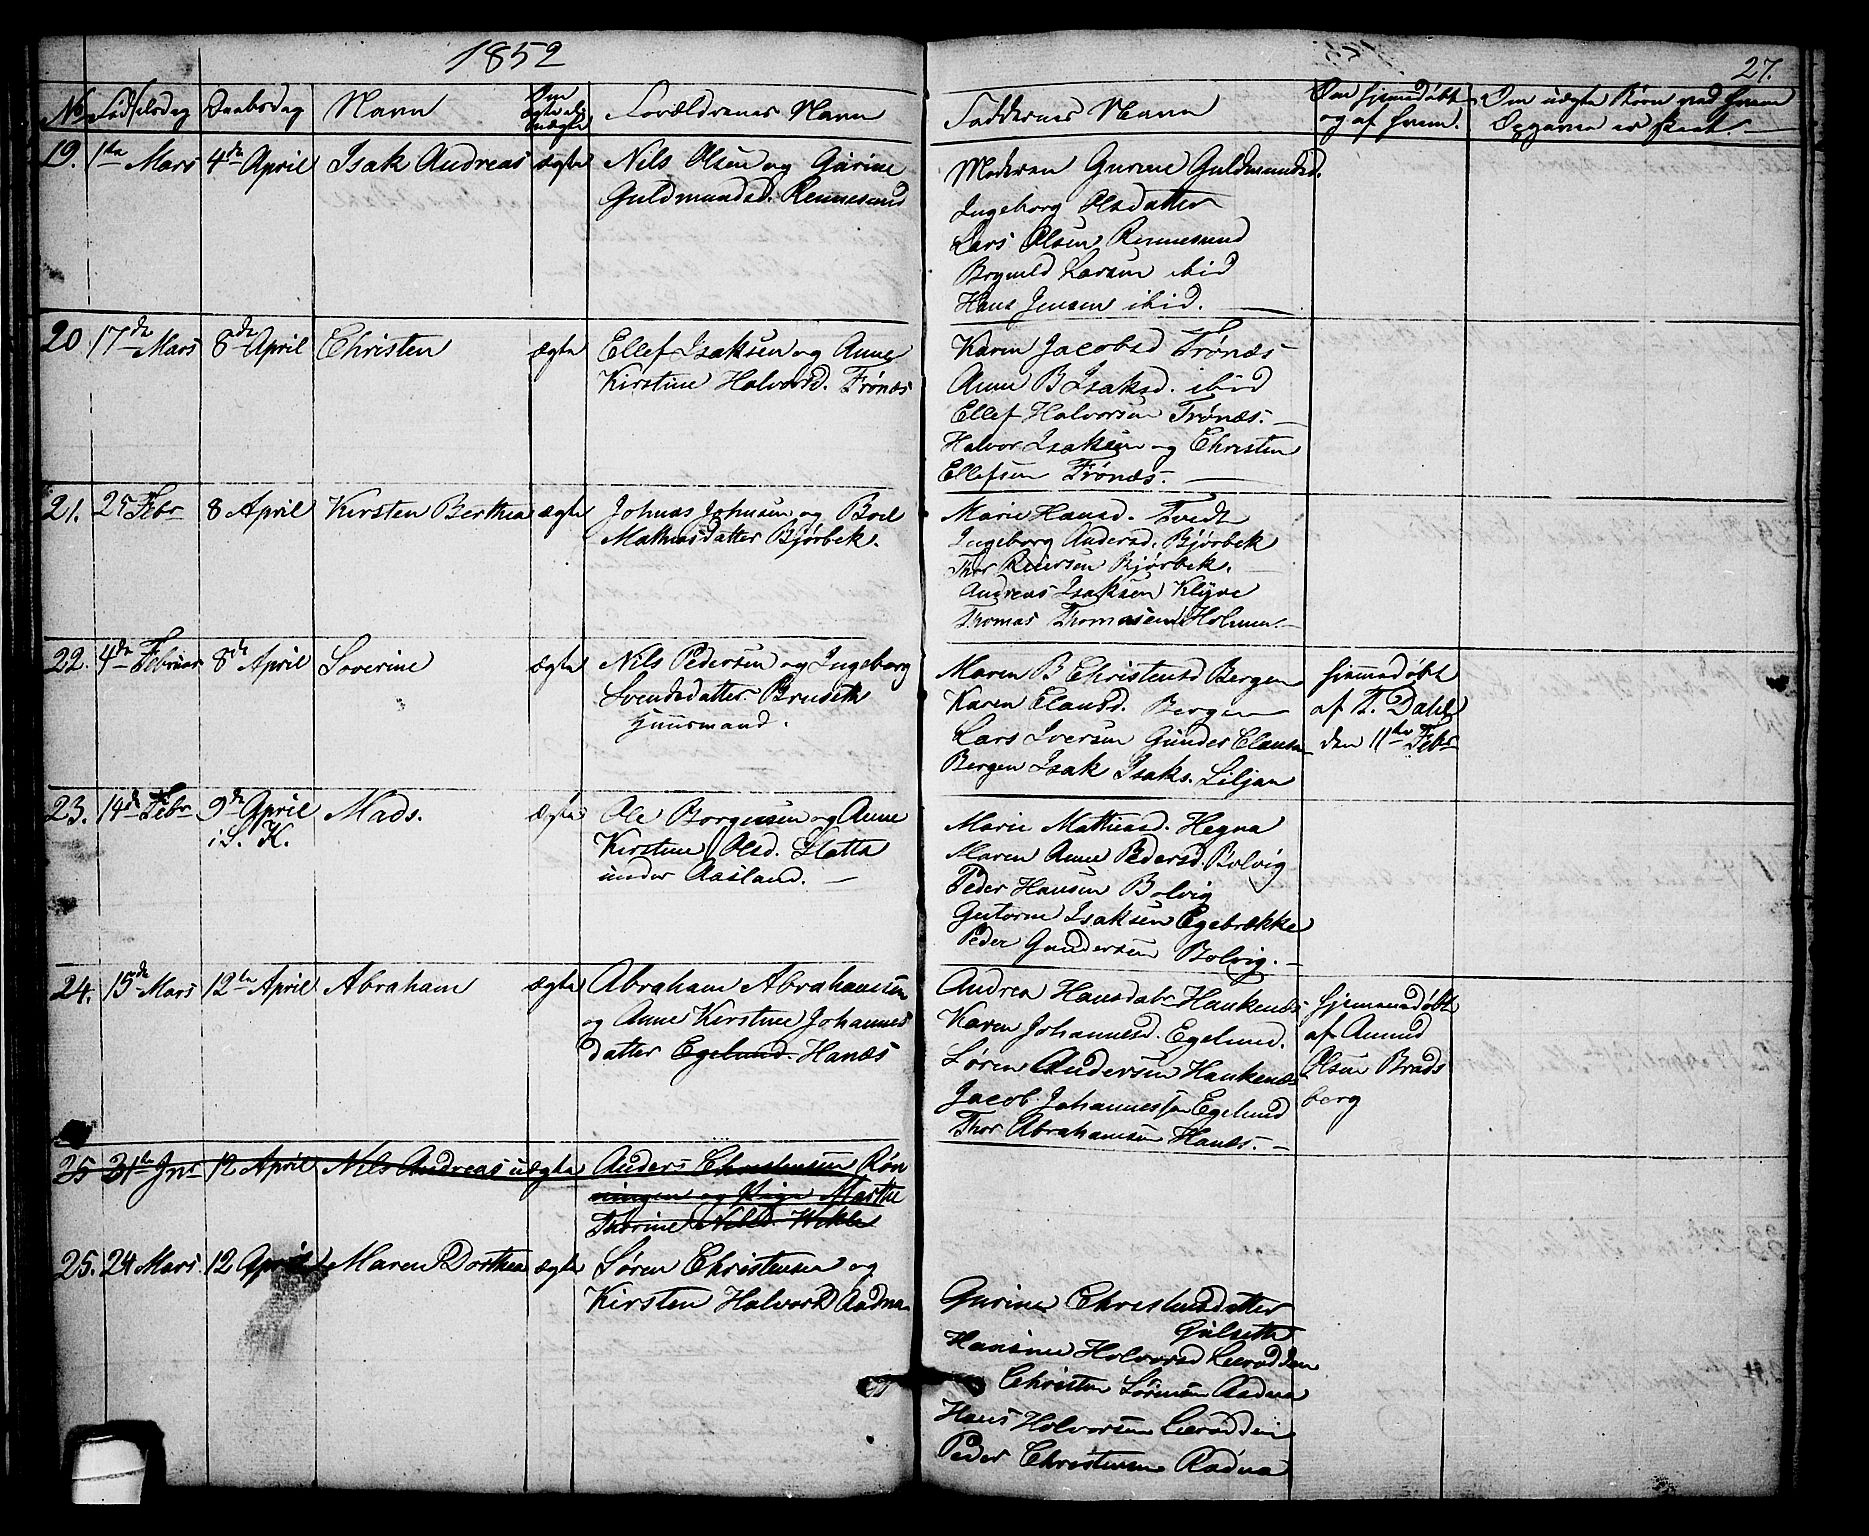 1852
27.
No Fødselsdag Daabsdag Navn Om ægte el. uægte Forældrenes Navn Faddernes Navn Om hjemmedøbt og af hvem. Om uægte Børn ved hvem Opgaven er skeet
19. 1ste Mars 4de April Isak Andreas ægte Nils Olsen og Gurine
Guldmundsd. Rennesund
Moderen Gurine Guldmundsd.
Ingeborg Olsdatter
Lars Olsen Rennesund
Brynild Larsen ibid
Hans Jensen ibid.
20 17de Mars 8de April Christen ægte Ellef Isaksen og Anne
Kirstine Halvorsd. Trønæs
Karen Jacobsd Trønæs
Anne B Isaksd. ibid
Ellef Halvorsen Trønæs.
Halvor Isaksen og Christen
Ellefsen Trønæs.
21. 25 Febr 8 April Kirsten Berthea ægte Johnas Johnsen og Boel
Mathiasdatter Bjørbek.
Marie Hansd. Tvedt
Ingeborg Andersd. Bjørbek
Thor Reiersen Bjørbek.
Andreas Isaksen Klyve
Thomas Thomasen Holmen.
22. 4de Februar 8de April Severine ægte Nils Pedersen og Ingeborg
Svendsdatter Bruseth
Huusmand.
Maren B Christensd Bergen
Karen Clausd. Bergen
Lars Iversen Gunder Clausen
Bergen Isak Isaks. Liljan
hjemmedøbt
af T. Dahl
den 11te Febr
23. 14de Febr 9de April Mads. ægte Ole Børgesen og Anne
i S. K.
Kirstine Olsd. Sletta
under Aasland.
Marie Mathiasd. Hegna
Maren Anne Pedersd. Bolvig
Peder Hansen Bolvig
Gutorm Isaksen Egebrække
Peder Gundersen Bolvig.
24. 15de Mars 12te April Abraham ægte Abraham Abrahamsen
og Anne Kirstine Johannes
datter Egelund. Hanæs
Andrea Hansdatr Haukenæs
Karen Johannesd. Egelund.
Søren Andersen Haukenæs
Jacob Johannessen Egelund
Thor Abrahamsen Hanæs.
hjemmedøbt
af Amund
Olsen Brads
berg
25 31te Jnr 12 April Nils Andreas uægte Anders Christensen Røn
ningen og Pige Marthe
Thorine Nilsd.
25. 24 Mars 12 April Maren Dorthea ægte Søren Christensen og
Kirsten Halvorsd Aadna
Gurine Christensdatter
Gulseth
Hansine Halvorsd Lerødden
Christen Sørensen Aadna
Hans Halvorsen Lerødden
Peder Christensen Aadna